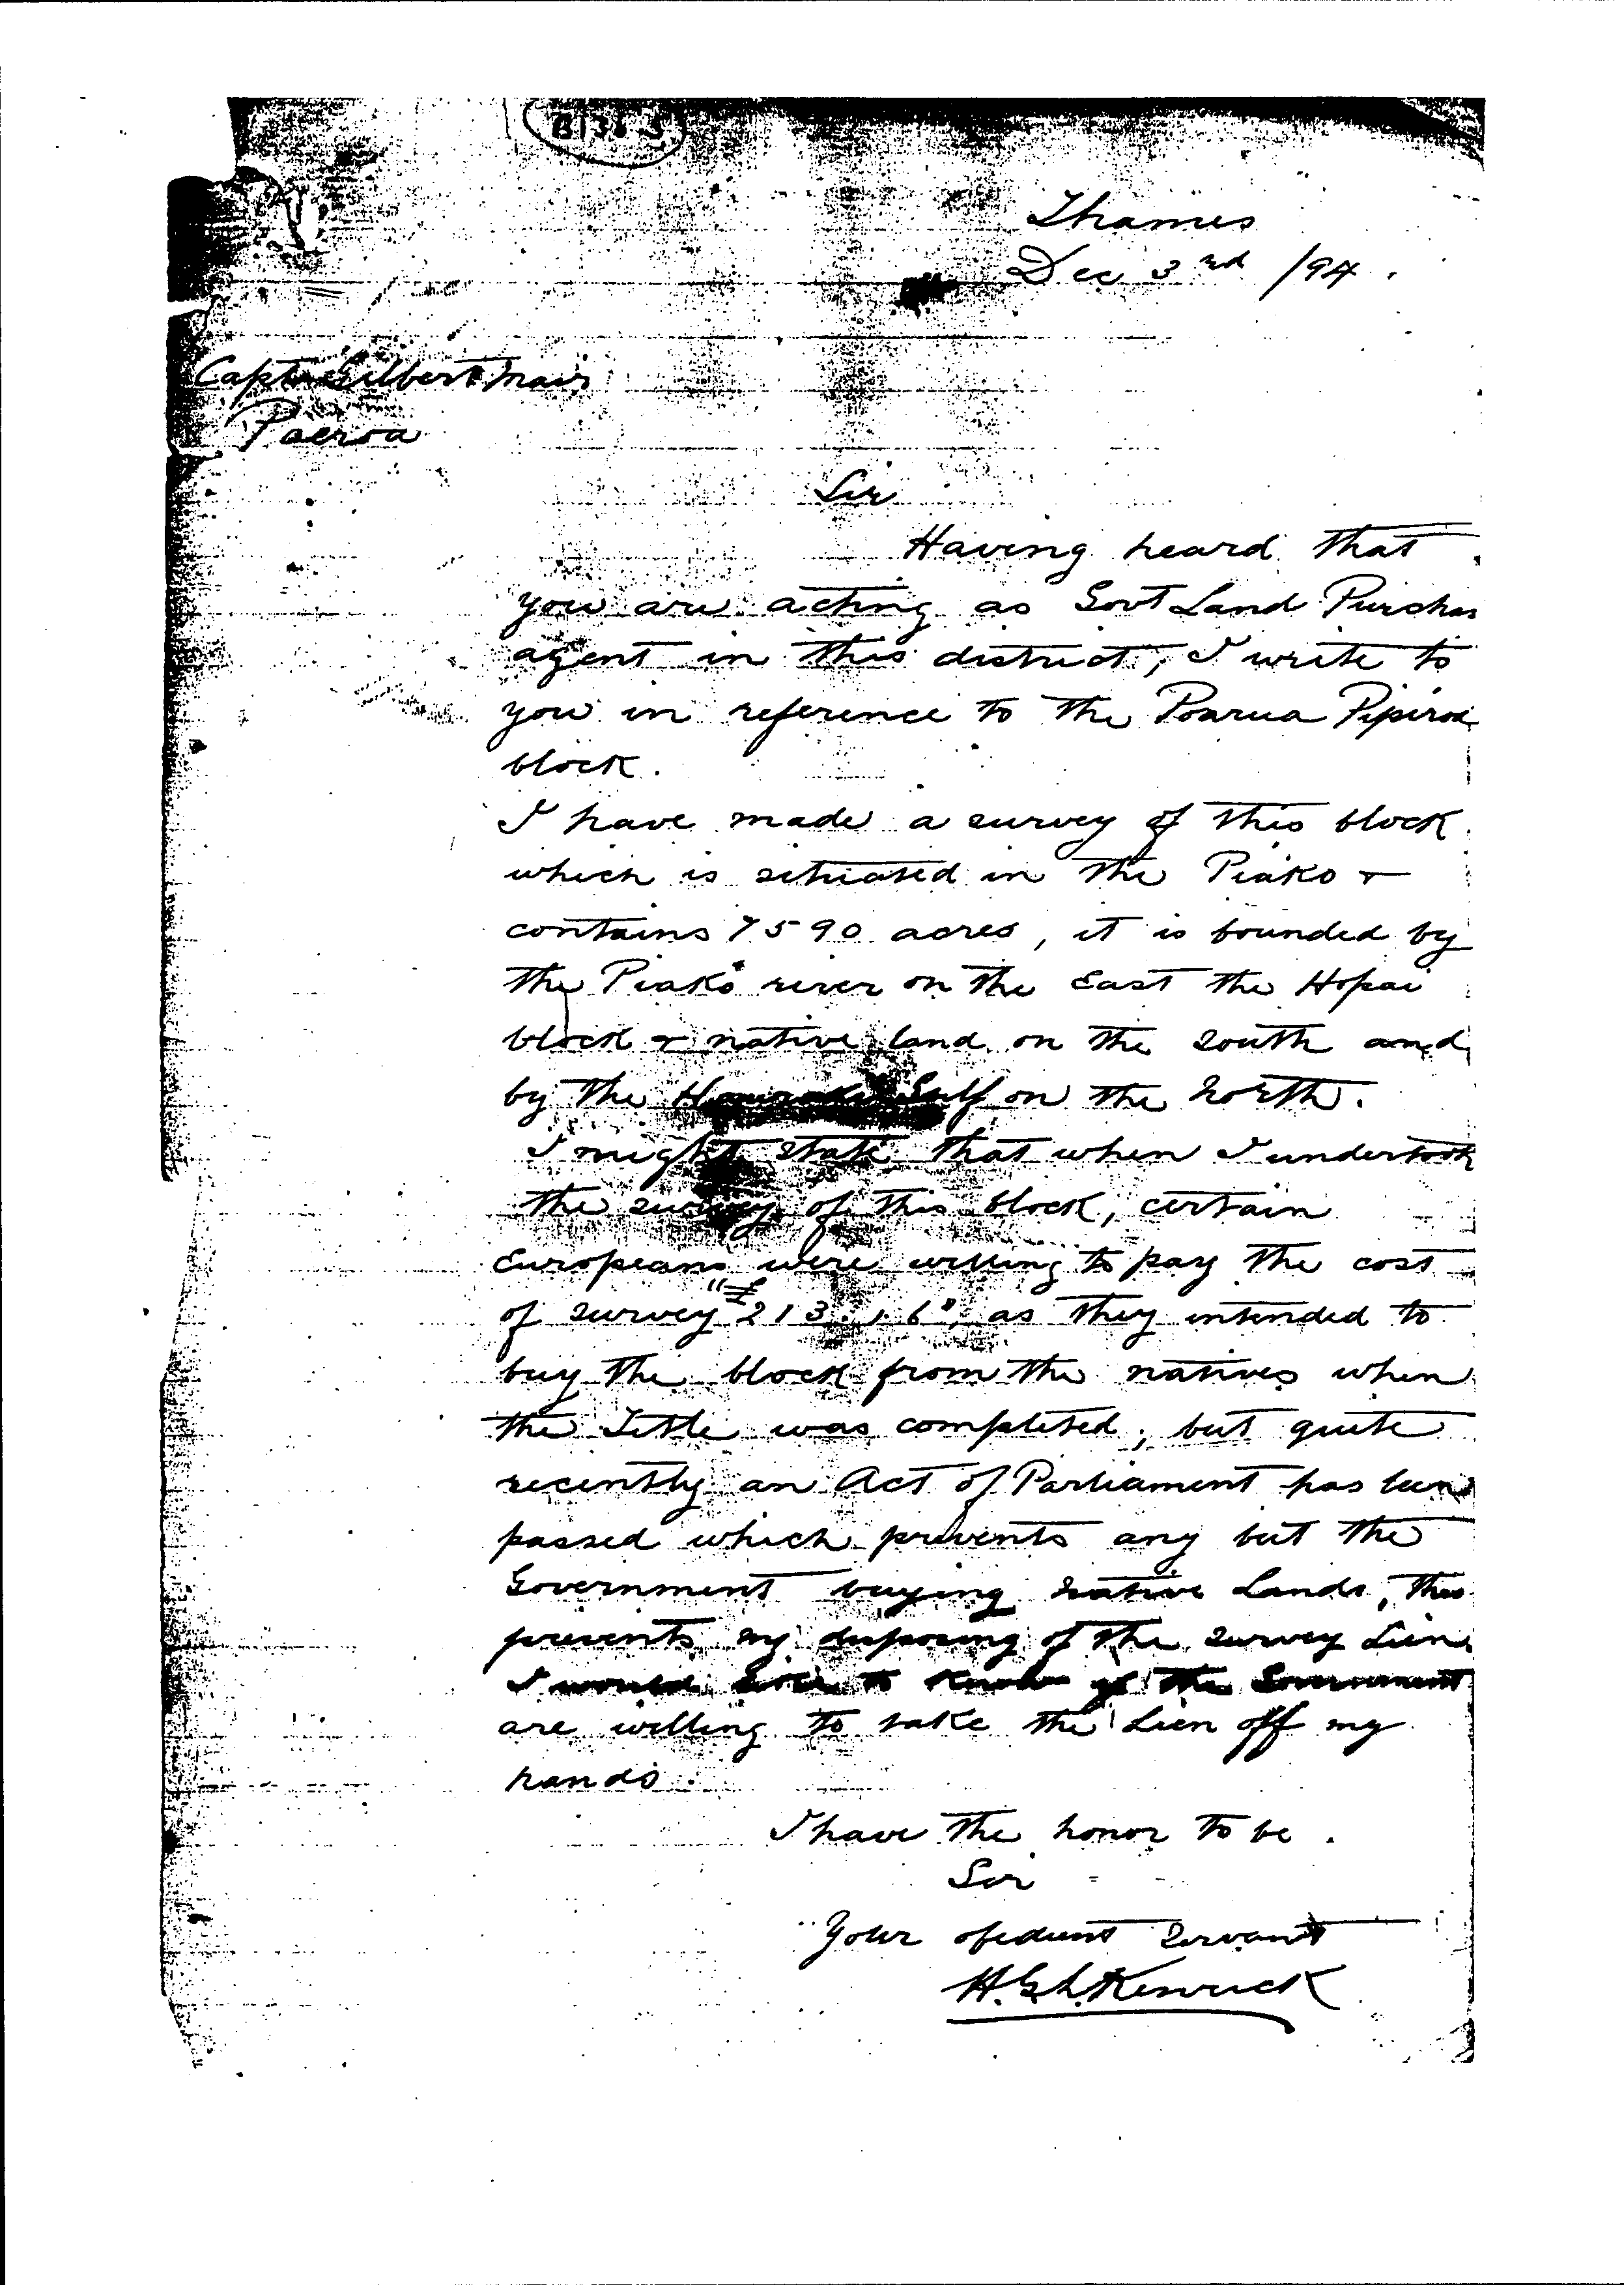 Thames
Dec 3rd /94.
Capt Gilbert Mair
Paeroa
Sir
Having heard that
you are acting as Govt Land Purchas
agent in this district, I write to
you in reference to the Poarua Pipiroa
block.
I have made a survey of this block
which is situated in the Piako &
contains 7590 acres, it is bounded by
the Piako river on the East the Hopai
block & native land on the South and
by the Hauraki Gulf on the North.
I might state that when I undertook
the survey of this block, certain
Europeans were willing to pay the cost
of survey "£213.1.6", as they intended to
buy the block from the natives when
the Title was completed; but quite
recently an Act of Parliament has been
passed which prevents any but the
Government buying native Lands, this
prevents my disposing of the survey Lien.
I would like to know if the Government
are willing to take the Lien off my
hands.
I have the honor to be.
Sir
Your obedient Servant
H.G.L. Kenrick